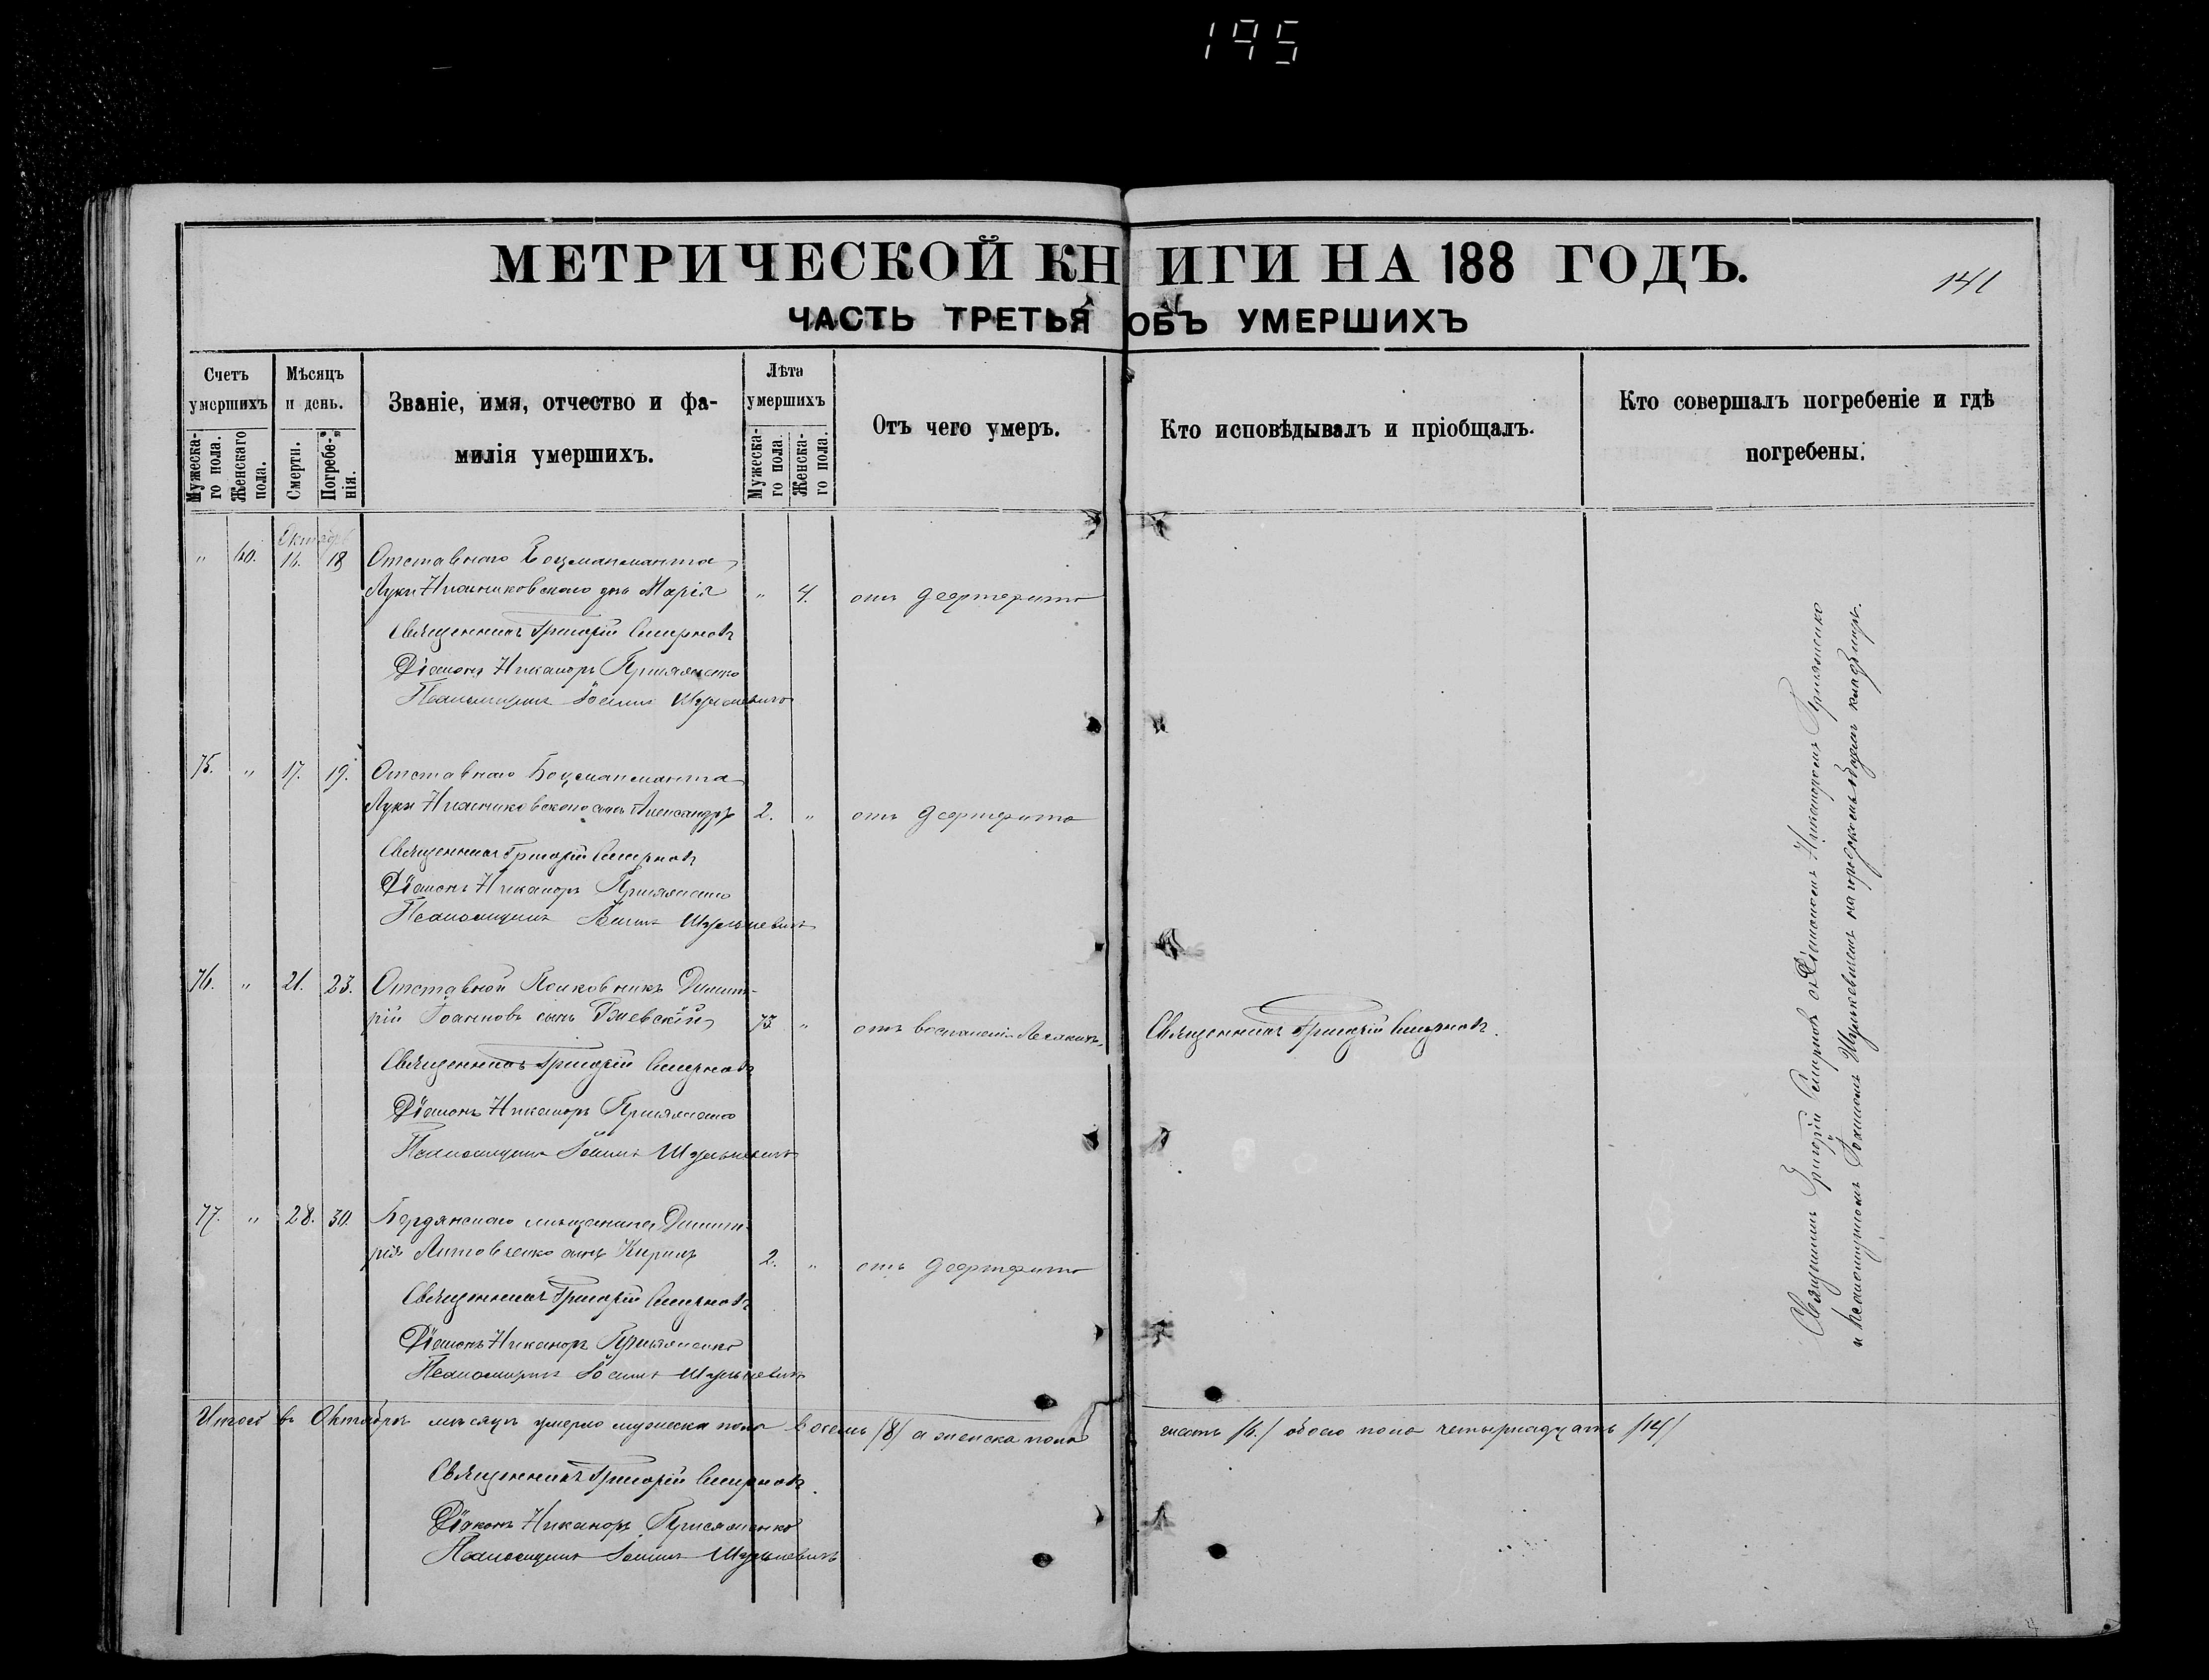 195
МЕТРИЧЕСКОЙ КНИГИ НА 188 ГОДЪ.
141
ЧАСТЬ ТРЕТЬЯ ОБЪ УМЕРШИХЪ
Счетъ умершихъ
Мужеска-го пола.
Женскаго пола.
Мѣсяцъ и день.
Смерти.
Погребе-нія.
Званіе, имя, отчество и фа-
милія умершихъ.
Лѣта умершихъ
Мужеска-го пола.
Женска-го пола.
Отъ чего умеръ.
Кто исповѣдывалъ и пріобщалъ.
Кто совершалъ погребеніе и гдѣ
погребены.
Октябрь
" 40. 16. 18 Отставнаго Боцманманта
Луки дчь Марія " 4. отъ дефтерита
Священникъ Григорій Смирновъ
Діаконъ Никаноръ Присяженко
Псаломщикъ Іоаннъ
75. " 17. 19. Отставнаго Боцманманта
Луки сынъ Александръ 2. " отъ дефтерита
Священникъ Григорій Смирновъ
Діаконъ Никаноръ Присяженко
Псаломщикъ Іоаннъ
76. " 21. 23. Отставной Полковникъ Димит-
рій Іоанновъ сынъ 73 " отъ воспаленія Легкихъ. Священникъ Григорій Смирновъ.
Священникъ Григорій Смирновъ
Діаконъ Никаноръ Присяженко
Псаломщикъ Іоаннъ
77. " 28. 30. Бердянскаго мѣщанина Димит-
рія Литовченко сынъ Кирилъ 2. " отъ дефтерита
Священникъ Григорій Смирновъ
Діаконъ Никаноръ Присяженко
Псаломщикъ Іоаннъ
Итого въ Октябрѣ мѣсяцѣ умерло мужеска пола восемь /8/ а женска пола шесть /6/ обоего пола четырнадцать /14/
Священникъ Григорій Смирновъ.
Діаконъ Никаноръ Присяженко
Псаломщикъ Іоаннъ
Священникъ Григорій Смирновъ съ Діакономъ Никаноромъ Присяженко
и Псаломщикомъ Іоанномъ на городскомъ кладбищѣ.